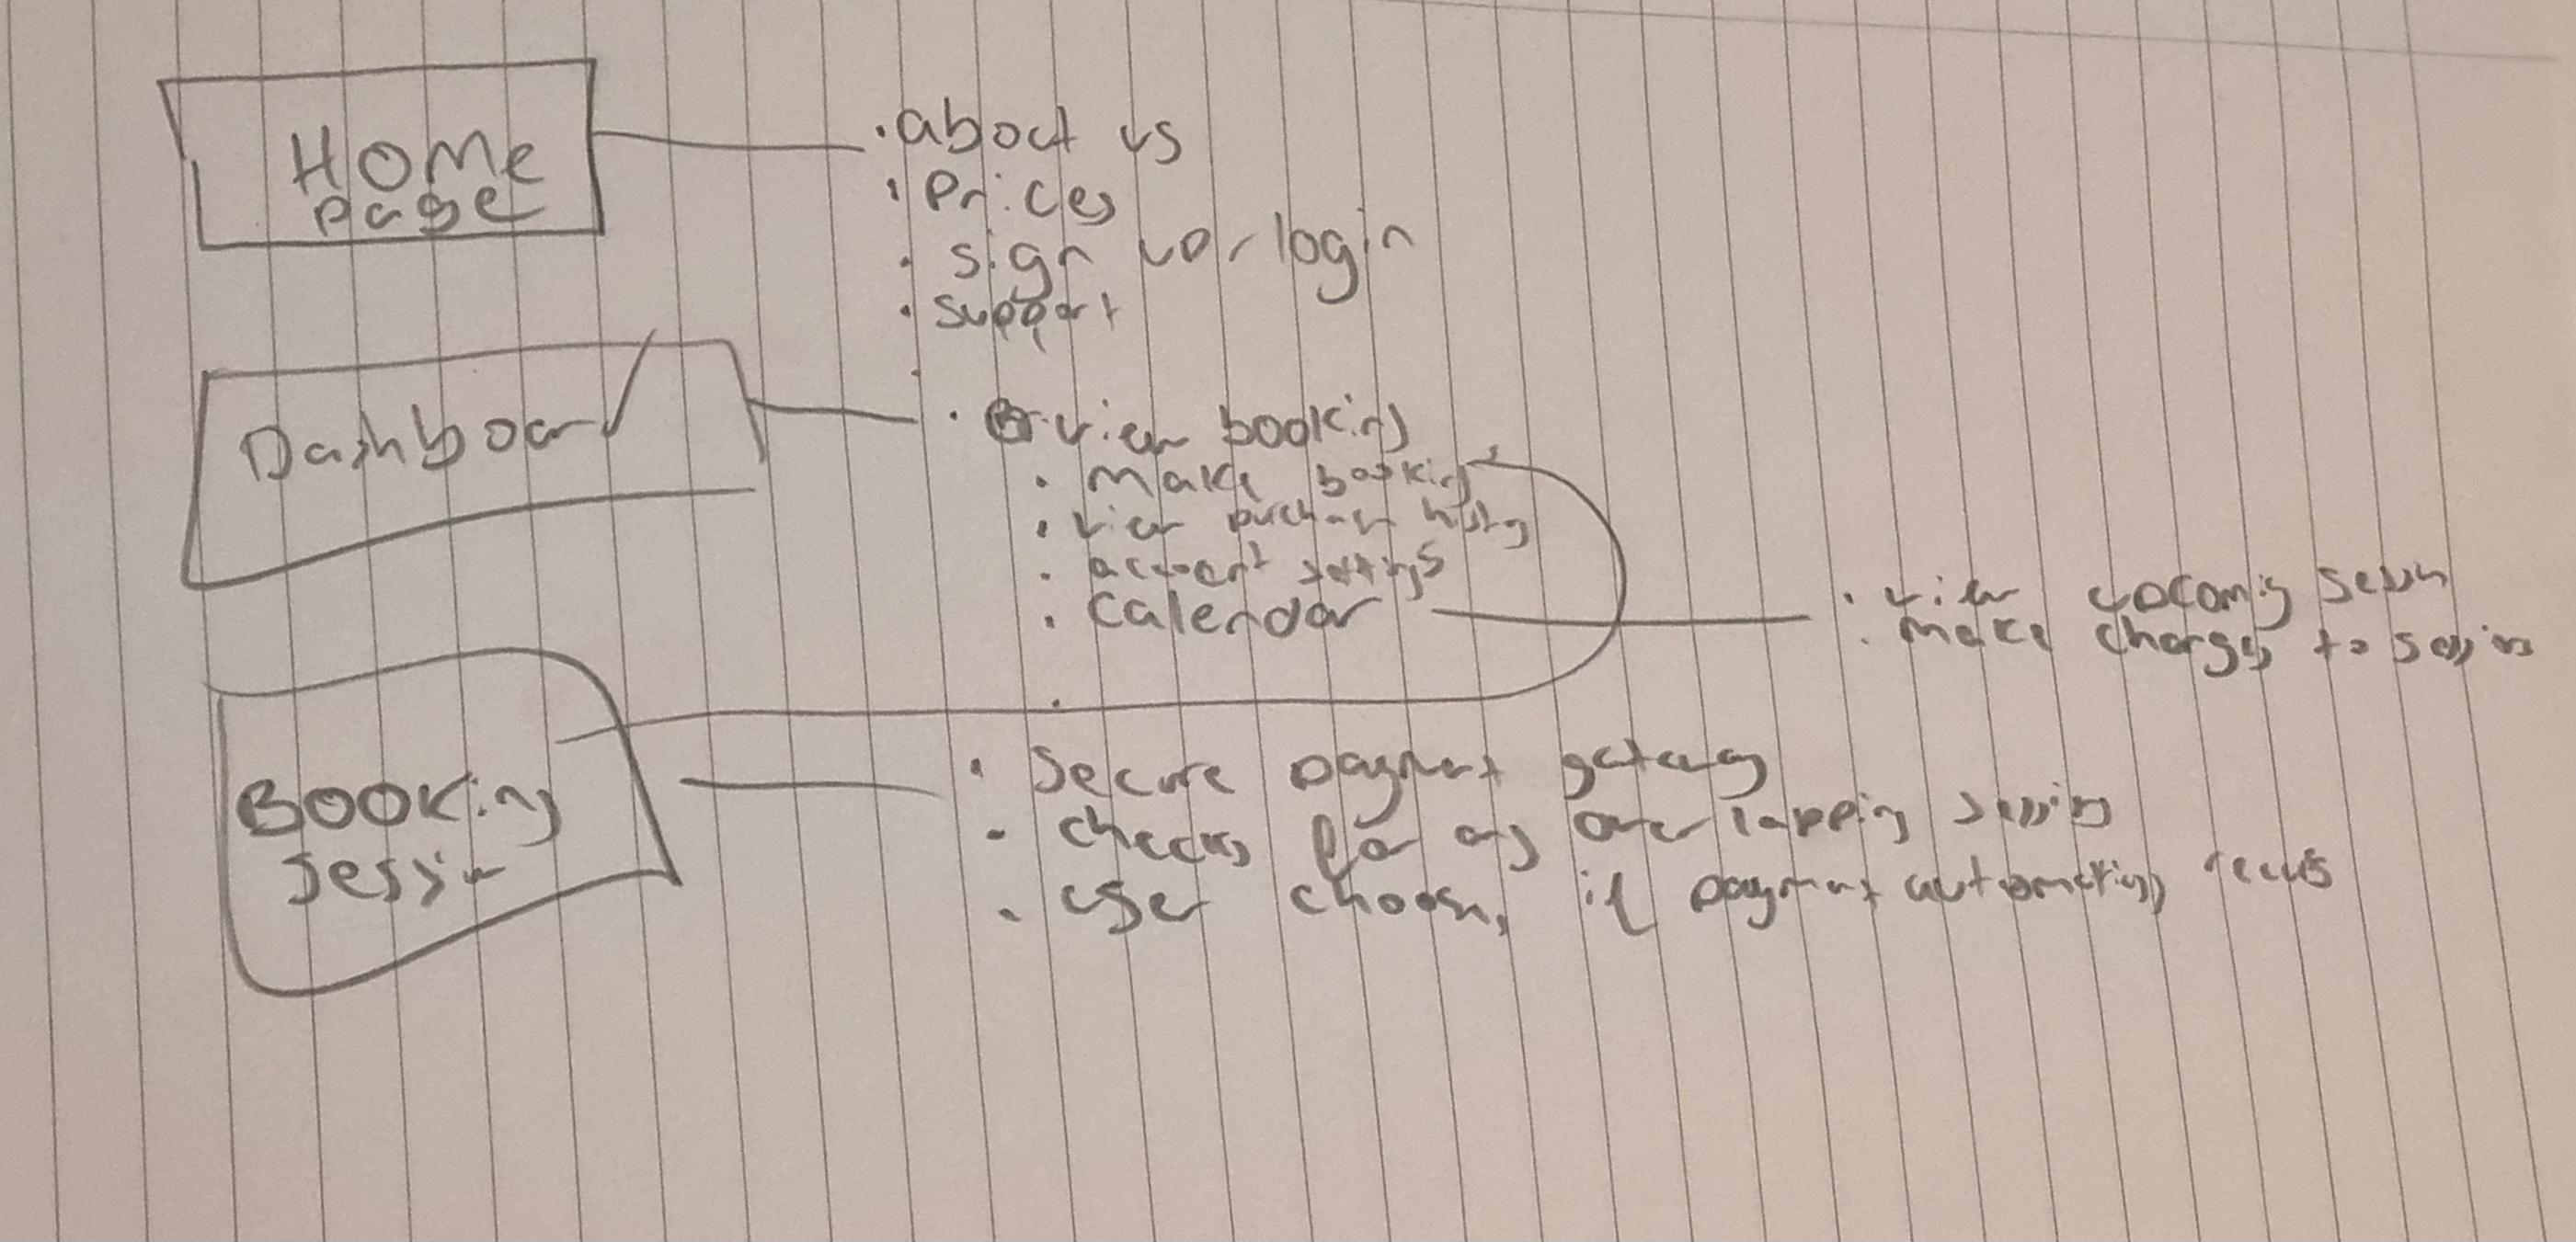 Home
page
· about us
· Prices
· sign up / login
· support
Dashboard
· view booking
· make booking
· view purchase history
· account settings
· Calendar
· view upcoming session
· make changes to session
Booking
session
· Secure payment gateway
· checks for any overlapping sessions
· user chooses if payment automatically